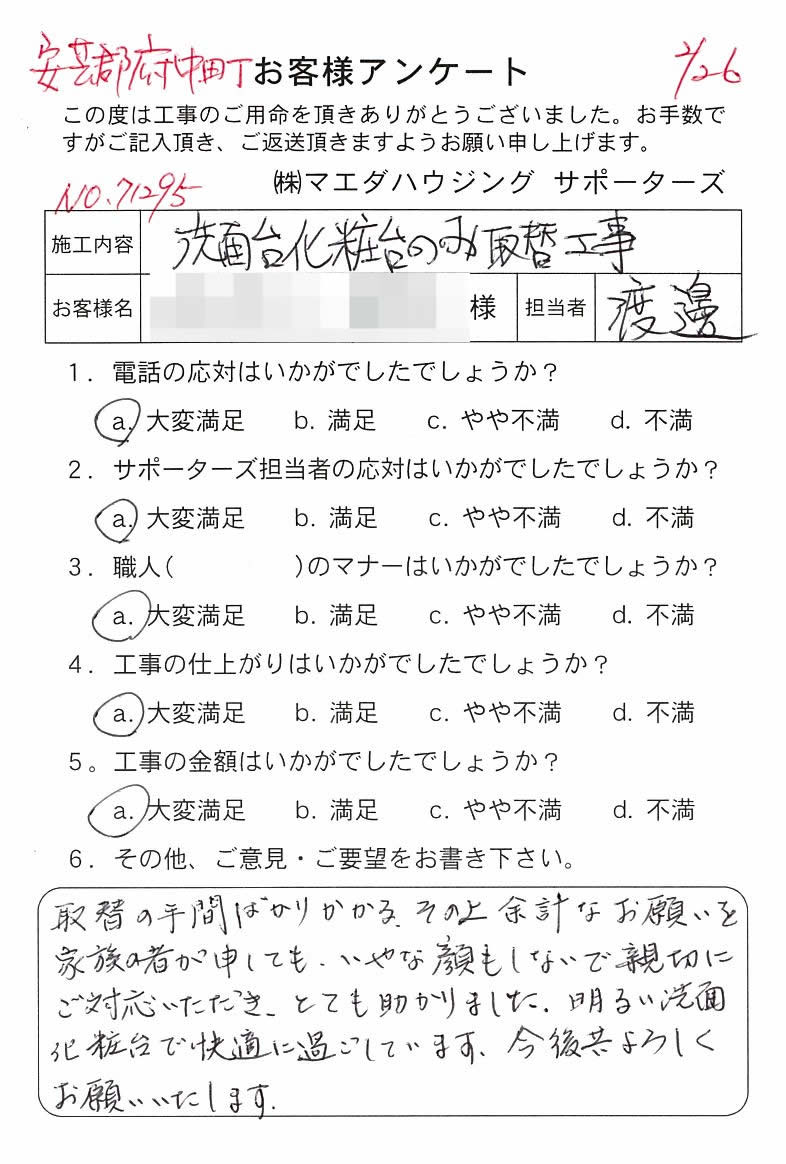 安芸郡府中町 お客様アンケート 2/26
この度は工事のご用命を頂きありがとうございました。お手数で
すがご記入頂き、ご返送頂きますようお願い申し上げます。
NO.71295 ㈱マエダハウジング サポーターズ
施工内容 洗面台化粧台のみ取替工事
お客様名 様 担当者 渡邊
1. 電話の応対はいかがでしたでしょうか？
a. 大変満足 b. 満足 c. やや不満 d. 不満
2. サポーターズ担当者の応対はいかがでしたでしょうか？
a. 大変満足 b. 満足 c. やや不満 d. 不満
3. 職人( )のマナーはいかがでしたでしょうか？
a. 大変満足 b. 満足 c. やや不満 d. 不満
4. 工事の仕上がりはいかがでしたでしょうか？
a. 大変満足 b. 満足 c. やや不満 d. 不満
5。工事の金額はいかがでしたでしょうか？
a. 大変満足 b. 満足 c. やや不満 d. 不満
6. その他、ご意見・ご要望をお書き下さい。
取替の手間ばかりかかる、その上余計なお願いを
家族の者が申しても、いやな顔もしないで親切に
ご対応いただき、とても助かりました。明るい洗面
化粧台で快適に過ごしています。今後共よろしく
お願いいたします。